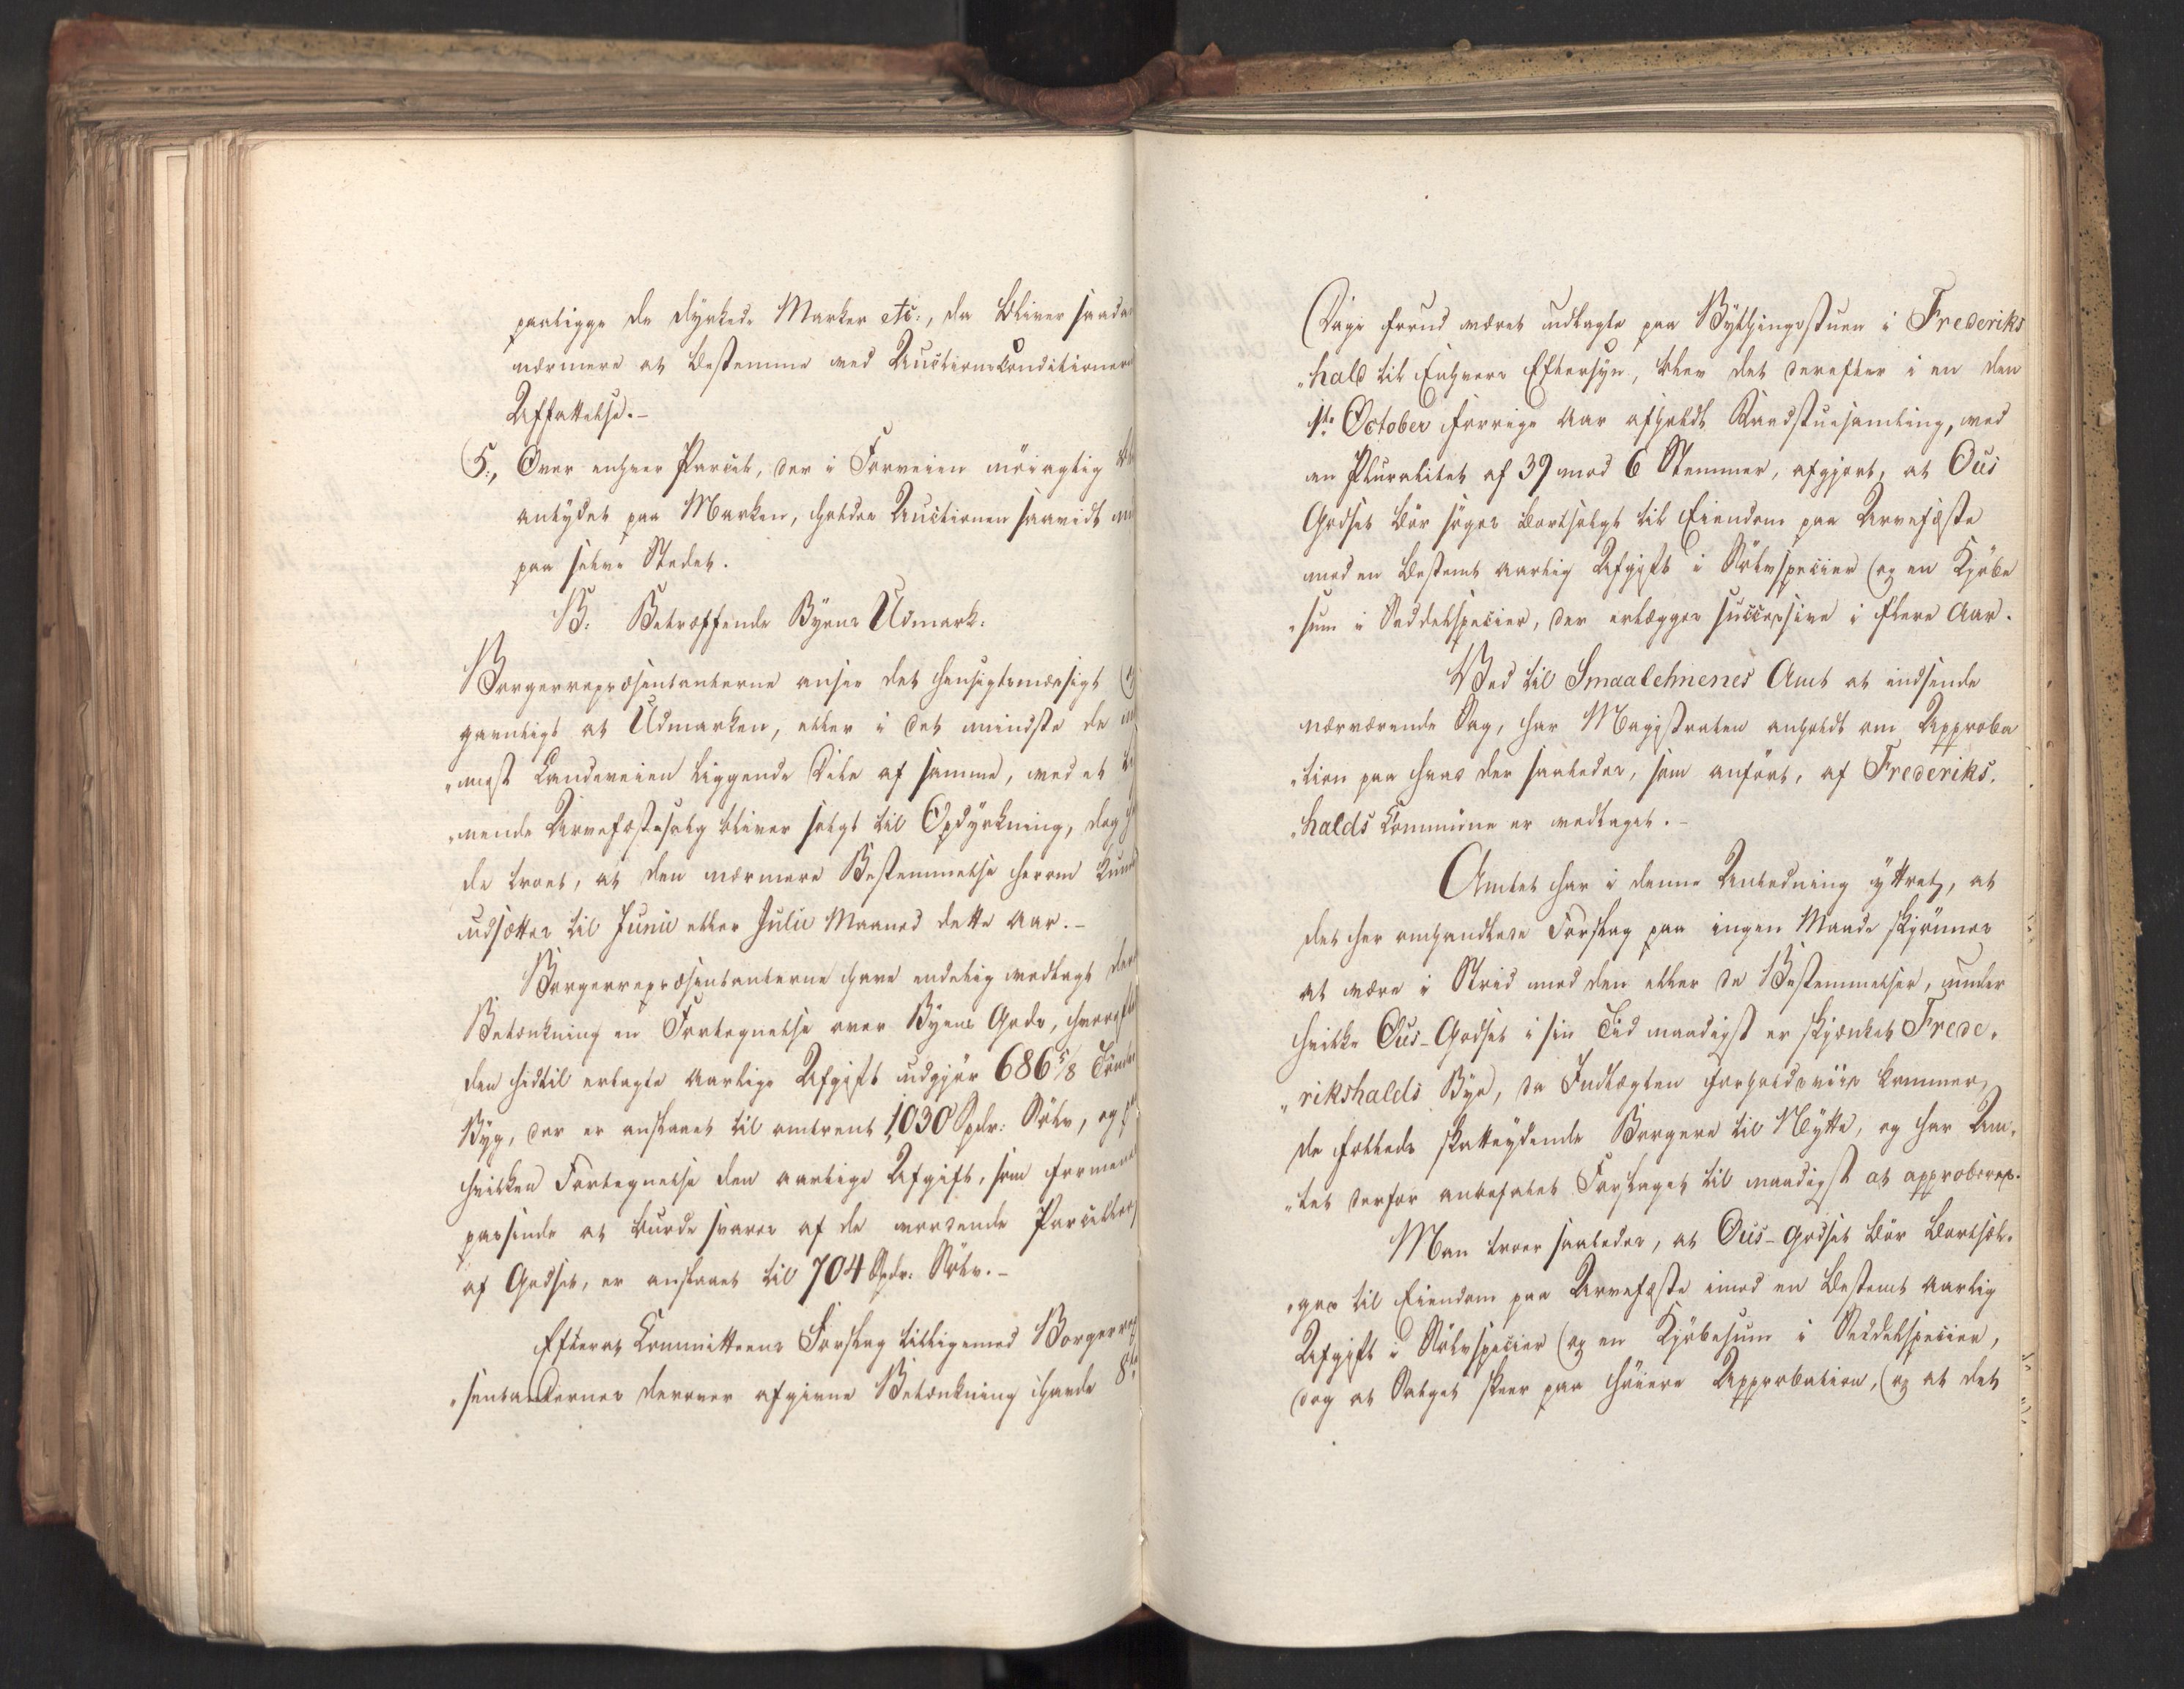 paaligge de dyrkede Marker etc:, da bliver saada
nærmere at bestemme ved Auctionsconditioner
Affattelse.-
5., Over enhver Parcel, der i Forveien nöiagtig
antydet paa Marken, holdes Auctionen saavidt
paa selve Stedet.
B. Betræffende Byens Udmark.
Borgerrepræsentanterne ansee det hensigtsmæssigt
gavnligt at Udmarken, eller i det mindste de
„mest Landeveien liggende Dele af samme, ved et
„mende Arvefæstesalg bliver solgt til Opdyrkning, dog
de troet, at den nærmere Bestemmelse herom kund
udsættes til Junii eller Julii Maaned dette Aar.-
Borgerrepræsentanterne have endelig vedlagt
Betænkning en Fortegnelse over Byens Gods, hvorefter
den hidtil erlagte aarlige Afgift udgjör 686 5/8 Tönder
Byg, der er anslaaet til omtrent 1030 Spdr: Sölv, og
hvilken Fortegnelse den aarlige Afgift, som formenes
passende at burde svares af de værende Parceller
af Godset, er anslaaet til 704 Spdr: Sölv.-
Efterat Committeens Forslag tilligemed Borgerrep
„sentanternes derover afgivne Betænkning havde 8te
Dage forud været udlagte paa Bythingsstuen i Frederiks
„hald til Enhvers Eftersyn, blev det derefter i en den
1ste October forrige Aar afholdt Raadstuesamling, med
en Pluralitet af 39 mod 6 Stemmer, afgjort, at Ous
Godset bör söges bortsolgt til Eiendom paa Arvefæste
mod en bestemt aarlig Afgift i Sölvspecier og en Kjöbe
„sum i Seddelspecier, der erlægges successive i flere Aar.
Ved til Smaalehnenes Amt at indsende
nærværende Sag, har Magistraten anholdt om Approba
„tion paa hvad der saaledes, som anfört, af Frederiks„
„halds Commune er vedtaget.-
Amtet har i denne Anledning yttret, at
det her omhandlede Forslag paa ingen Maade skjönnes
at være i Strid med den eller de Bestemmelser, under
hvilke Ous-Godset i sin Tid naadigst er skjænket Frede„
„rikshalds Bye, da Indtægten forholdsviis kommer
de fælleds skatteydende Borgere til Nytte, og har Am„
„tet derfor anbefalet Forslaget til naadigst at approberes.
Man troer saaledes, at Ous-Godset bör bortsæl„
„ges til Eiendom paa Arvefæste imod en bestemt aarlig
Afgift i Sölvspecier og en Kjöbesum i Seddelspecier,
dog at Salget skeer paa höiere Approbation, og at det